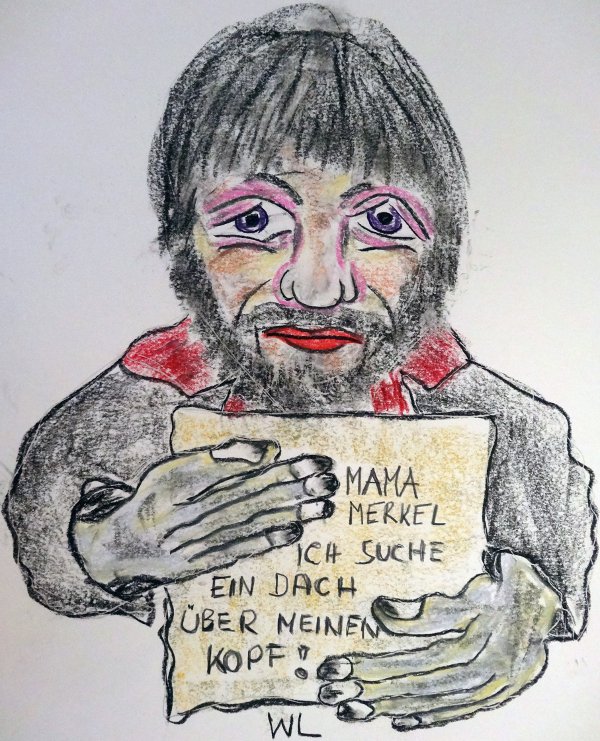 MAMA
MERKEL
ICH SUCHE
EIN DACH
ÜBER MEINEN
KOPF!
WL